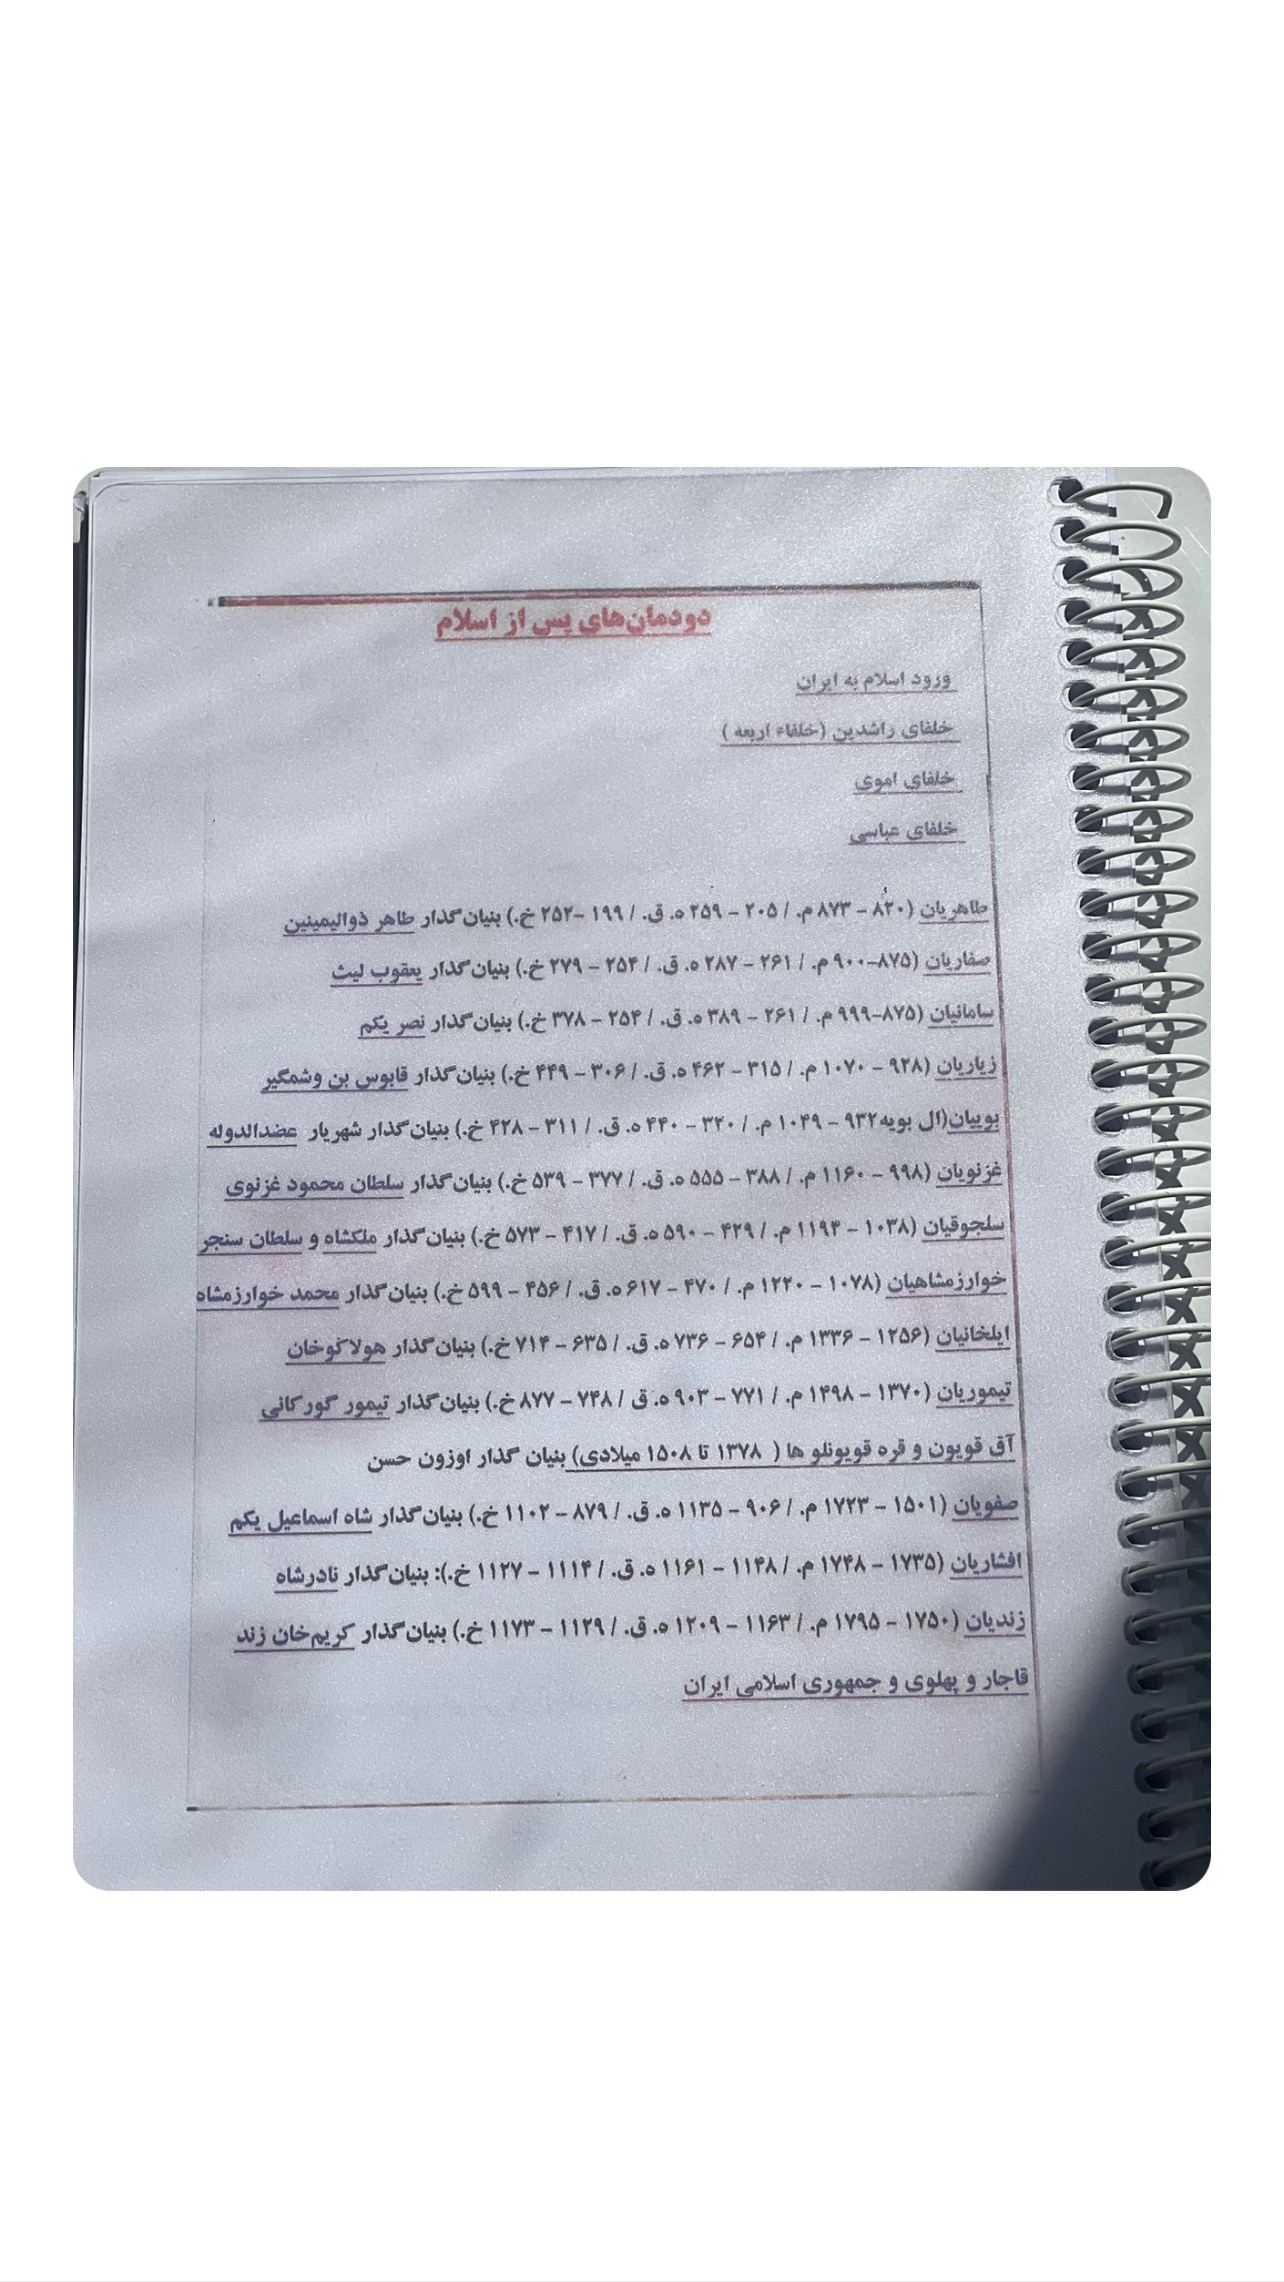 دودمان‌های پس از اسلام
ورود اسلام به ایران
خلفای راشدین (خلفاء اربعه )
خلفای اموی
خلفای عباسی
طاهریان (۸۲۰ – ۸۷۳ م. / ۲۰۵ – ۲۵۹ ه. ق. / ۱۹۹ –۲۵۲ خ.) بنیان‌گذار طاهر ذوالیمینین
صفاریان (۸۷۵–۹۰۰ م. / ۲۶۱ – ۲۸۷ ه. ق. / ۲۵۴ – ۲۷۹ خ.) بنیان‌گذار یعقوب لیث
سامانیان (۸۷۵–۹۹۹ م. / ۲۶۱ – ۳۸۹ ه. ق. / ۲۵۴ – ۳۷۸ خ.) بنیان‌گذار نصر یکم
زیاریان (۹۲۸ – ۱۰۷۰ م. / ۳۱۵ – ۴۶۲ ه. ق. / ۳۰۶ – ۴۴۹ خ.) بنیان‌گذار قابوس بن وشمگیر
بوییان(ال بویه۹۳۲ – ۱۰۴۹ م. / ۳۲۰ – ۴۴۰ ه. ق. / ۳۱۱ – ۴۲۸ خ.) بنیان‌گذار شهریار عضدالدوله
غزنویان (۹۹۸ – ۱۱۶۰ م. / ۳۸۸ – ۵۵۵ ه. ق. / ۳۷۷ – ۵۳۹ خ.) بنیان‌گذار سلطان محمود غزنوی
سلجوقیان (۱۰۳۸ – ۱۱۹۴ م. / ۴۲۹ – ۵۹۰ ه. ق. / ۴۱۷ – ۵۷۳ خ.) بنیان‌گذار ملکشاه و سلطان سنجر
خوارزمشاهیان (۱۰۷۸ – ۱۲۲۰ م. / ۴۷۰ – ۶۱۷ ه. ق. / ۴۵۶ – ۵۹۹ خ.) بنیان‌گذار محمد خوارزمشاه
ایلخانیان (۱۲۵۶ – ۱۳۳۶ م. / ۶۵۴ – ۷۳۶ ه. ق. / ۶۳۵ – ۷۱۴ خ.) بنیان‌گذار هولاکوخان
تیموریان (۱۳۷۰ – ۱۴۹۸ م. / ۷۷۱ – ۹۰۳ ه. ق / ۷۴۸ – ۸۷۷ خ.) بنیان‌گذار تیمور گورکانی
آق قویون و قره قویونلو ها ( ۱۳۷۸ تا ۱۵۰۸ میلادی) بنیان گذار اوزون حسن
صفویان (۱۵۰۱ – ۱۷۲۳ م. / ۹۰۶ – ۱۱۳۵ ه. ق. / ۸۷۹ – ۱۱۰۲ خ.) بنیان‌گذار شاه اسماعیل یکم
افشاریان (۱۷۳۵ – ۱۷۴۸ م. / ۱۱۴۸ – ۱۱۶۱ ه. ق. / ۱۱۱۴ – ۱۱۲۷ خ.): بنیان‌گذار نادرشاه
زندیان (۱۷۵۰ – ۱۷۹۵ م. / ۱۱۶۳ – ۱۲۰۹ ه. ق. / ۱۱۲۹ – ۱۱۷۳ خ.) بنیان‌گذار کریم‌خان زند
قاجار و پهلوی و جمهوری اسلامی ایران